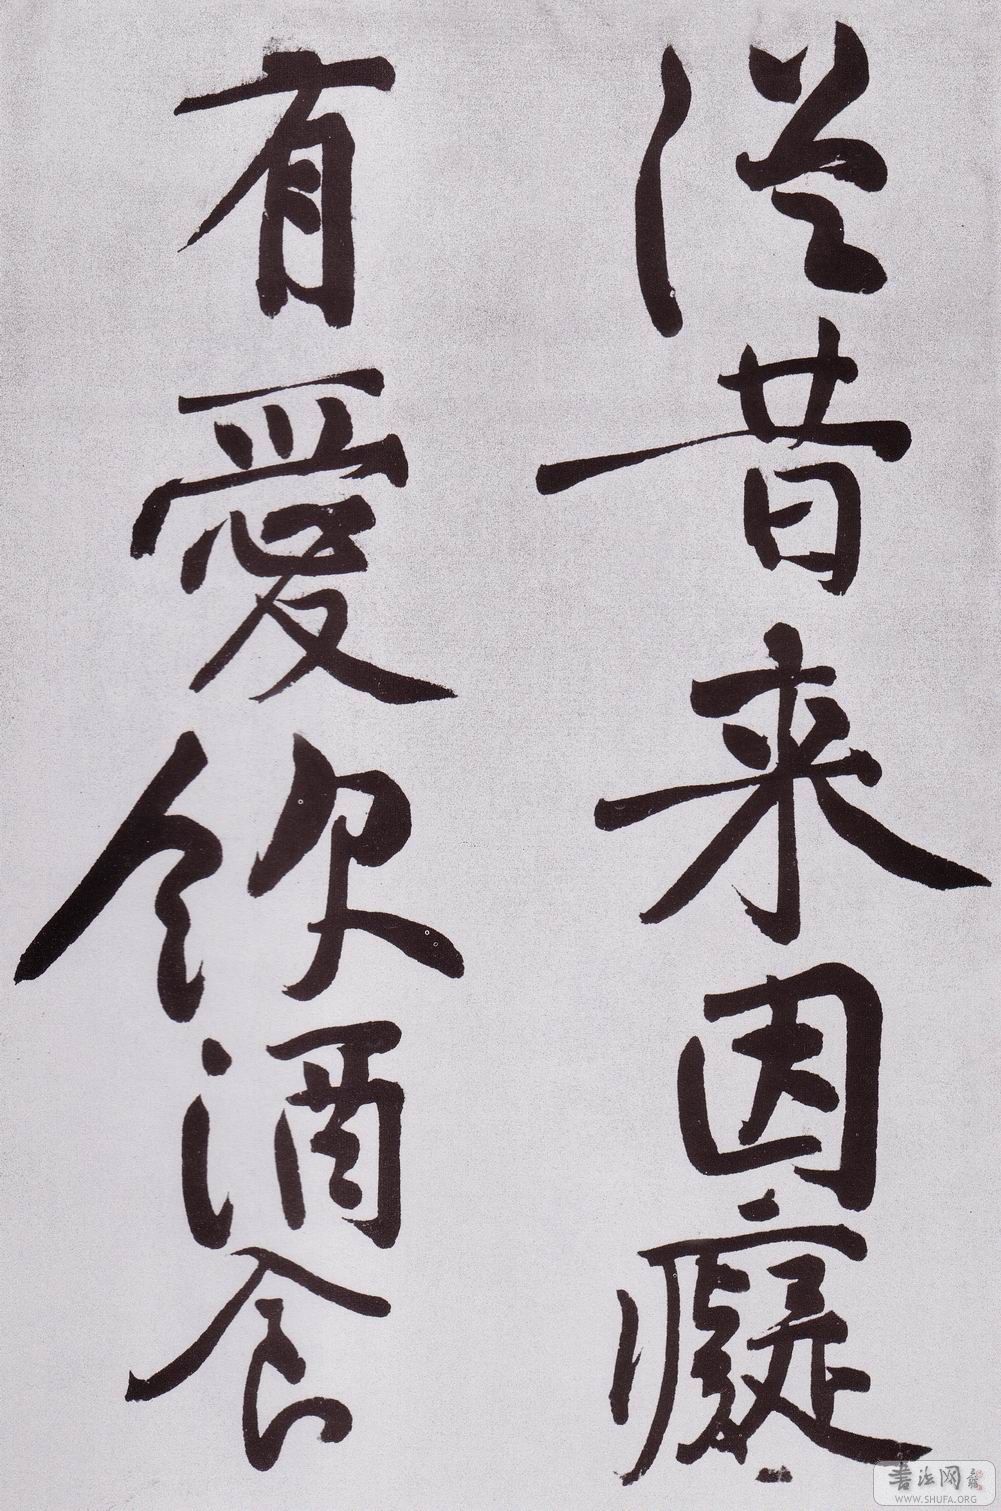 從昔來因癡
有愛飲酒食
書法网
WWW.SHUFA.ORG